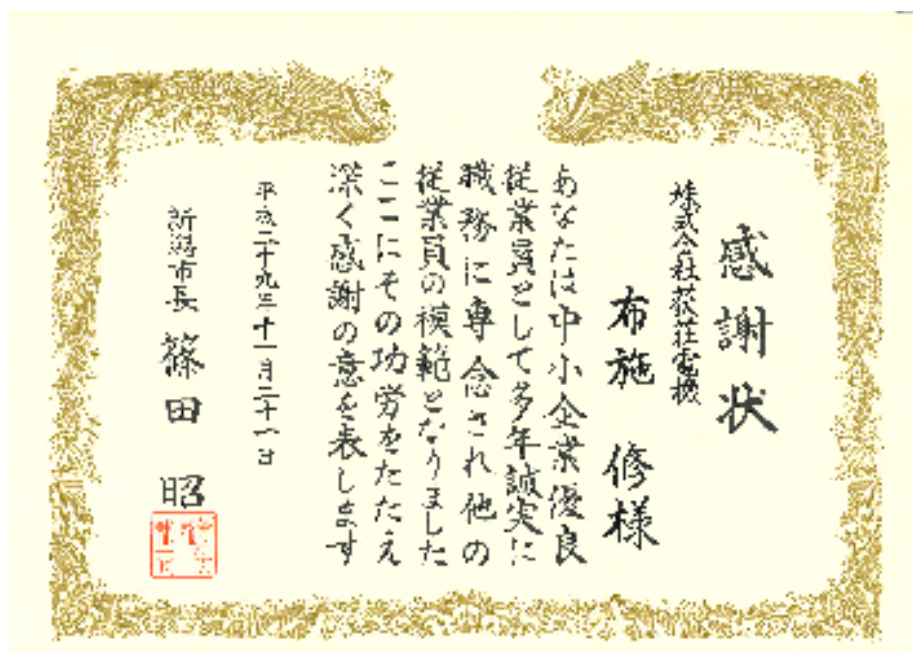 感謝状
株式会社荻荘電機
布施 修様
あなたは中小企業優良
従業員として多年誠実に
職務に専念され他の
従業員の模範となりました
ここにその功労をたたえ
深く感謝の意を表します
平成二十九年十一月二十一日
新潟市長 篠田 昭